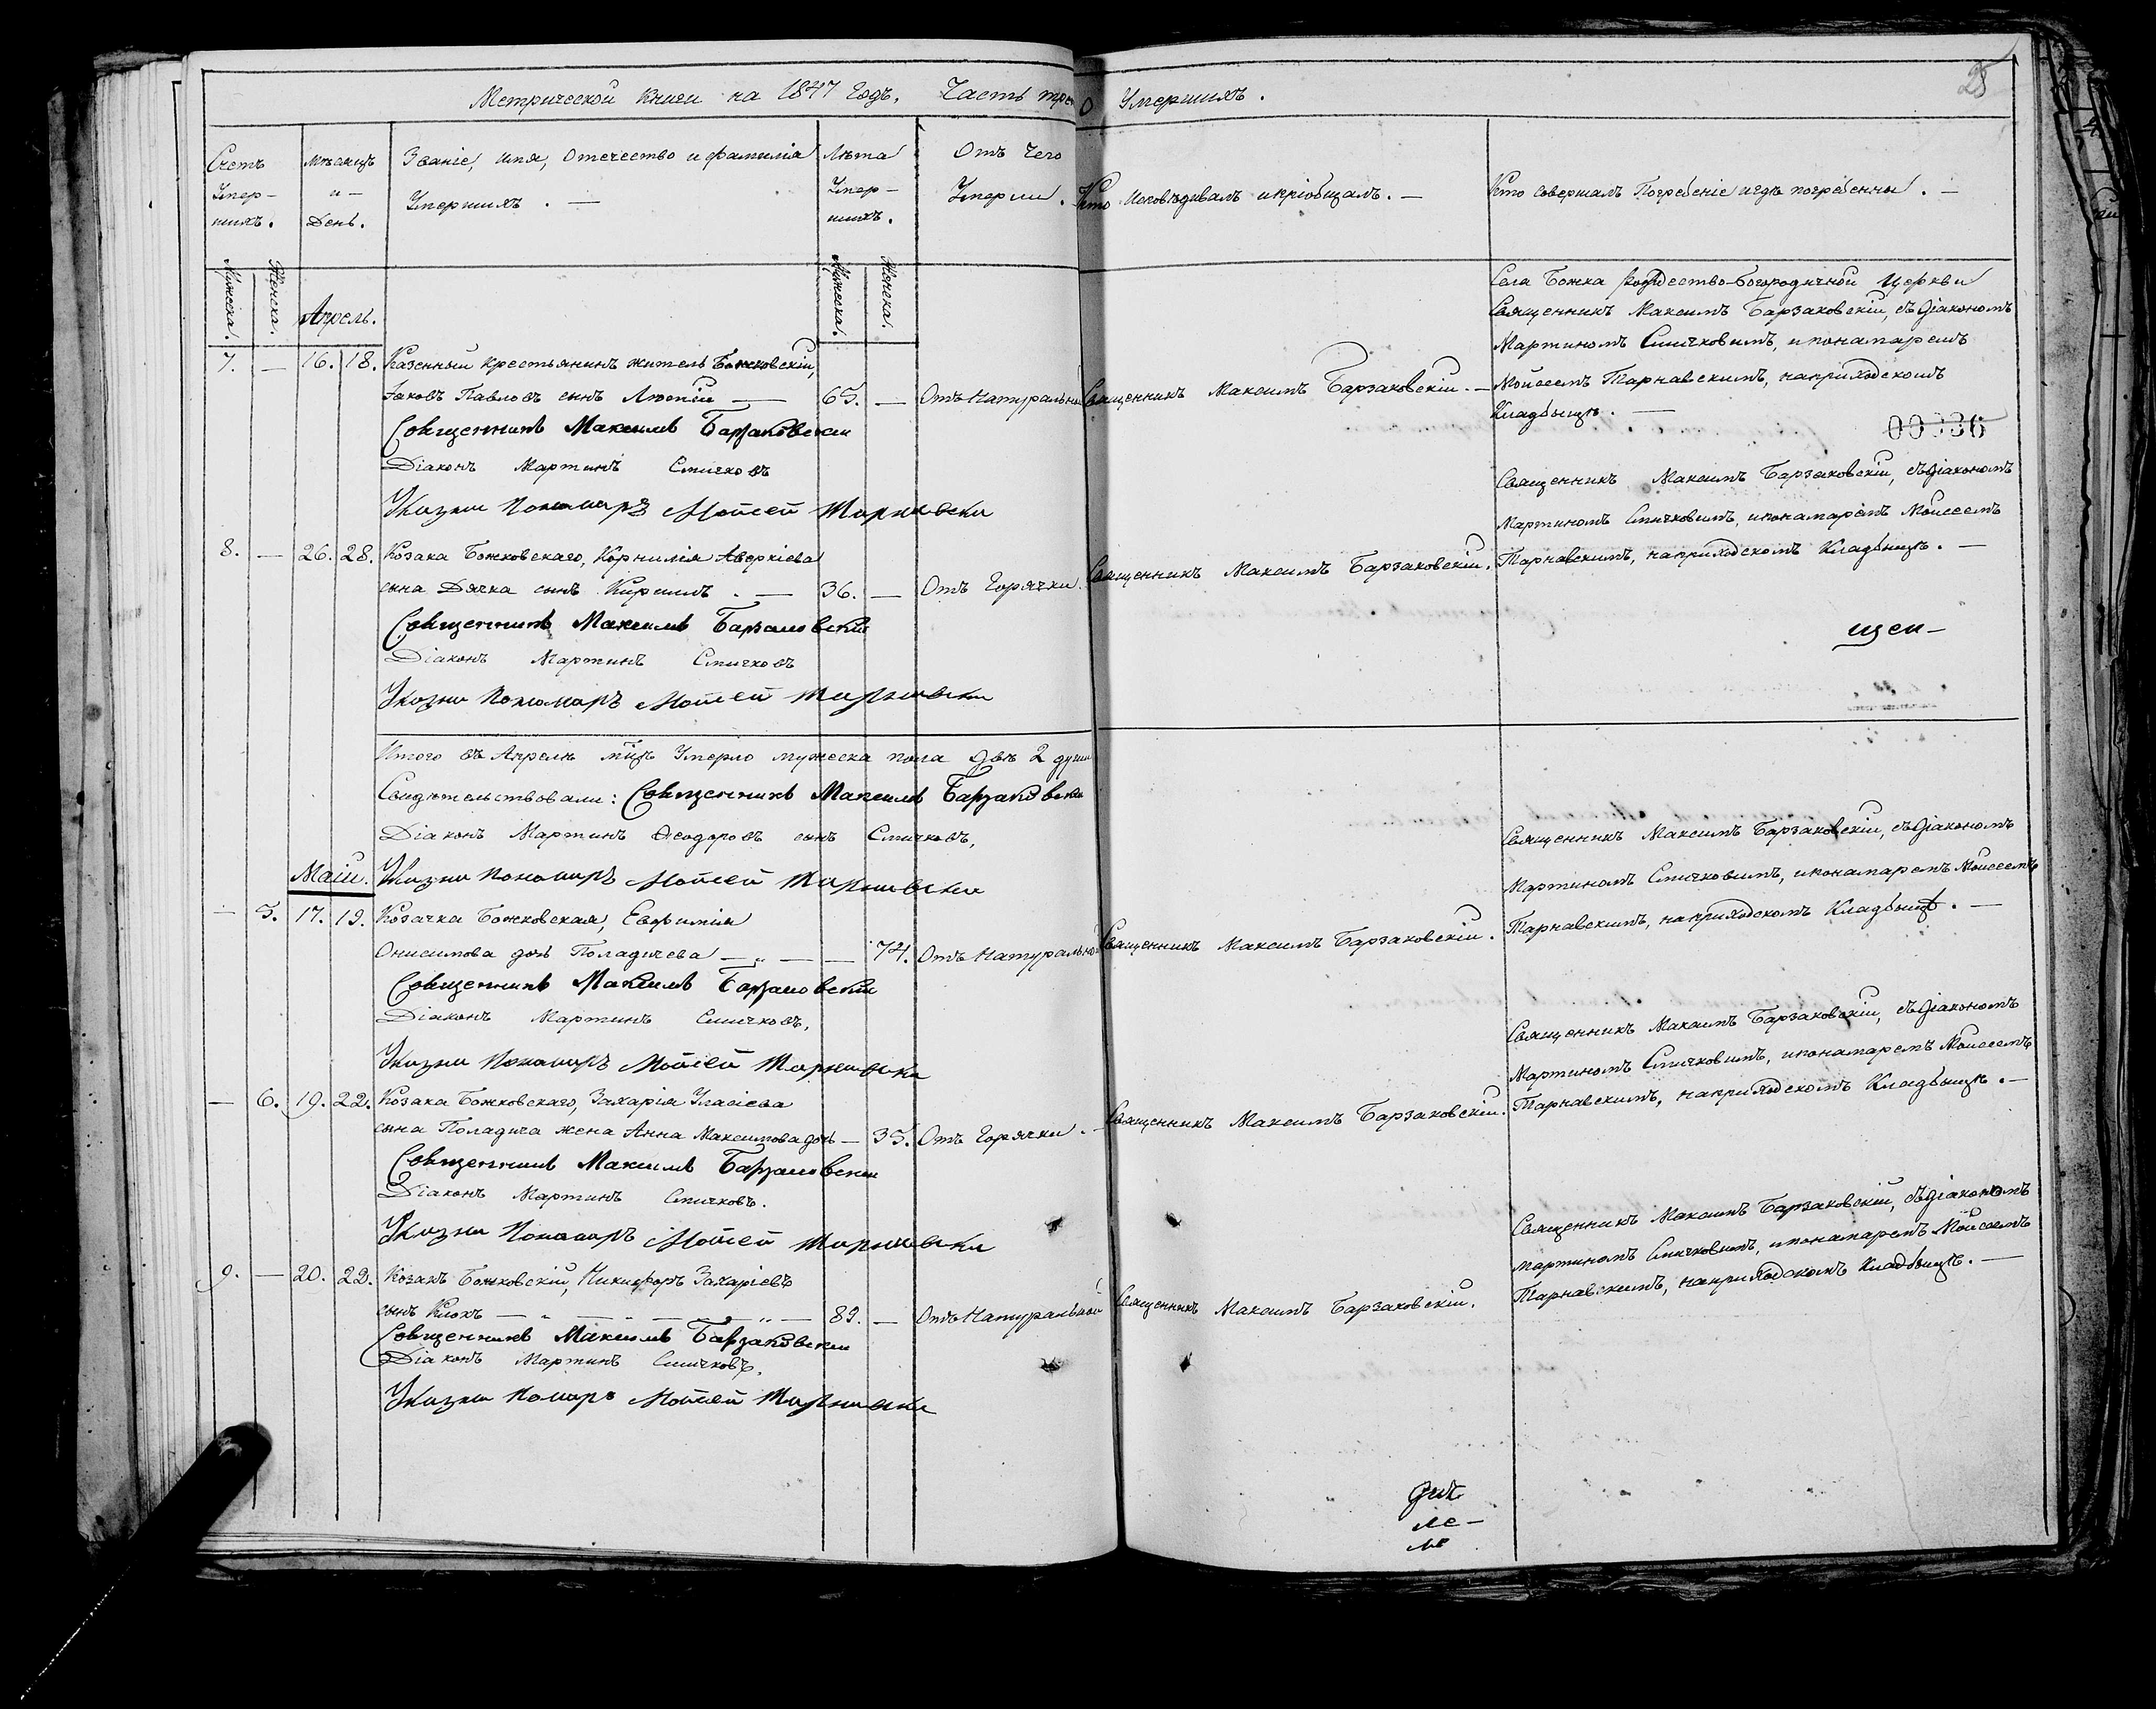 Метрической книги на 1847 годъ, Часть
О Умершихъ.
25
Счетъ Умер-шихъ.
Мѣсяцъ и День.
Званіе, имя, отечество и фамилія Умершихъ.
Лѣта Умер-шихъ.
Отъ чего Умерли.
Кто Исповѣдивалъ и пріобщалъ.
Кто совершалъ Погребеніе и гдѣ погребенны.
Мужеска. Женска.
Мужеска. Женска.
Апрель.
7. — 16. 18. Казенный крестьянинъ житель Божковскій,
Іаковъ Павловъ сынъ — 65. — Отъ Натуральной
Священникъ Максимъ Барзаковскій
Діаконъ Мартинъ Смичковъ
Пономаръ Мойсей Тарнавски
Священникъ Максимъ Барзаковскій. —
Села Божка Рождество-Богородичной Церкви
Священникъ Максимъ Барзаковскій, съ Діакономъ
Мартиномъ Смичковимъ, и понамаремъ
Мойсеемъ Тарнавскимъ, на приходскомъ
Кладбищѣ. —
00036
8. — 26. 28. Козака Божковскаго, Корнилія Аверкіева
сына Дячка сынъ Кирилъ. — 36. — Отъ Горячки.
Священникъ Максимъ Барзаковскій
Діаконъ Мартинъ Смичковъ
Пономаръ Мойсей Тарнавски
Священникъ Максимъ Барзаковскій.
Священникъ Максимъ Барзаковскій, съ Діакономъ
Мартиномъ Смичковимъ, и понамаремъ Мойсеемъ
Тарнавскимъ, на приходскомъ Кладбищѣ. —
щен-
Итого въ Апрелѣ мцѣ Умерло мужеска пола двѣ 2 души
Свидѣтельствовали: Священникъ Максимъ Барзаковскій
Діаконъ Мартинъ Ѳеодоровъ сынъ Смичковъ,
Пономаръ Мойсей Тарнавски
Маій.
— 5. 17. 19. Козачка Божковская, Евфимія
Онисимова дочь Поладичева — — 74. Отъ Натуральной
Священникъ Максимъ Барзаковскій
Діаконъ Мартинъ Смичковъ,
Пономаръ Мойсей Тарнавски
Священникъ Максимъ Барзаковскій.
Священникъ Максимъ Барзаковскій, съ Діакономъ
Мартиномъ Смичковимъ, и понамаремъ Мойсеемъ
Тарнавскимъ, на приходскомъ Кладбищѣ. —
— 6. 19. 22. Козака Божковскаго, Захарія Уласіева
сына Поладича жена Анна Максимова дочь — 35. Отъ Горячки. —
Священникъ Максимъ Барзаковскій
Діаконъ Мартинъ Смичковъ.
Пономаръ Мойсей Тарнавски
Священникъ Максимъ Барзаковскій.
Священникъ Максимъ Барзаковскій, съ Діакономъ
Мартиномъ Смичковимъ, и понамаремъ Мойсеемъ
Тарнавскимъ, на приходскомъ Кладбищѣ. —
9. — 20. 22. Козакъ Божковскій, Никифоръ Захаріевъ
сынъ — 89. — Отъ Натуральной
Священникъ Максимъ Барзаковскій
Діаконъ Мартинъ Смичковъ,
Помаръ Мойсей Тарнавски
Священникъ Максимъ Барзаковскій.
Священникъ Максимъ Барзаковскій, съ Діакономъ
Мартиномъ Смичковимъ, и понамаремъ Мойсеемъ
Тарнавскимъ, на приходскомъ Кладбищѣ. —